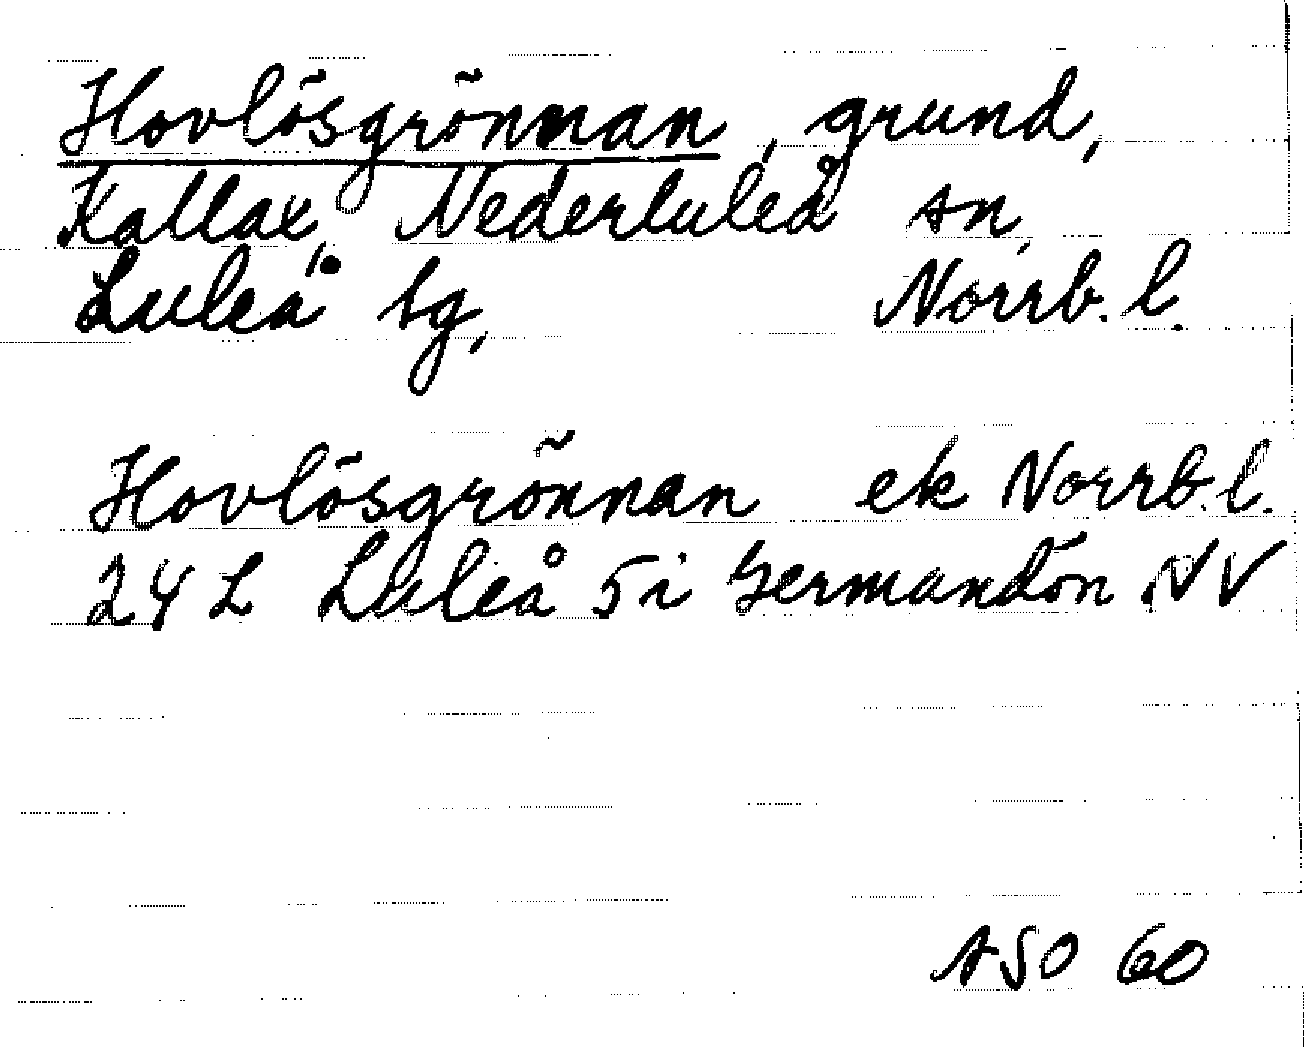 Hovlösgrönnan, grund,
Kallax, Nederluleå sn,
Luleå tg, Norrb. l.
Hovlösgrönnan ek Norrb. l.
24 L Luleå 5i Germandön NV
ASO 60